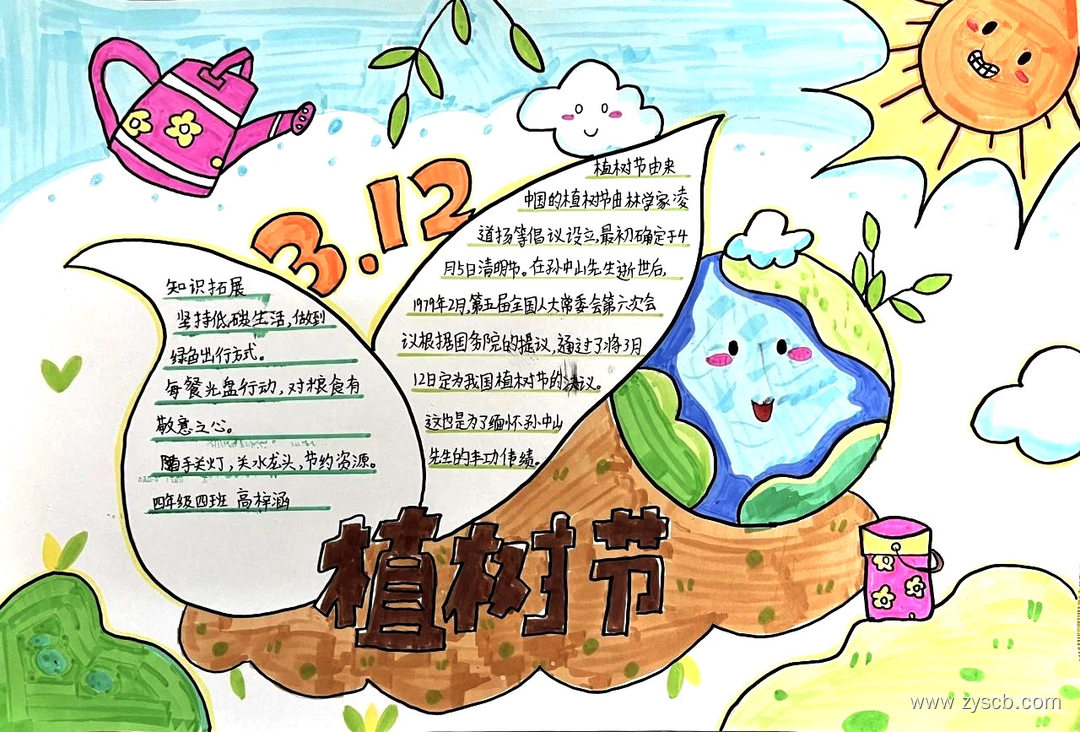 3.12
植树节由来
中国的植树节由林学家凌
道扬等倡议设立,最初确定于4
月5日清明节。在孙中山先生逝世后,
1979年2月,第五届全国人大常委会第六次会
议根据国务院的提议,通过了将3月
12日定为我国植树节的决议。
这也是为了缅怀孙中山
先生的丰功伟绩。
知识拓展
坚持低碳生活,做到
绿色出行方式。
每餐光盘行动,对粮食有
敬意之心。
随手关灯,关水龙头,节约资源。
四年级四班 高梓涵
植树节
www.zyscb.com